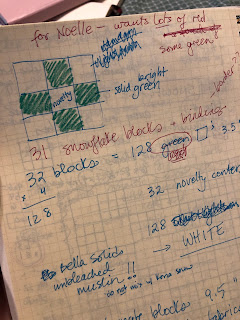 for Noelle - wants lots of red
some green
novelty
bright
solid
green
31 snowflake blocks + binding
border?
32 blocks = 128 green
red
□s 3.5
x 4
128
32 novelty cente
128
→ WHITE
Bella Solids
unbleached
muslin !!
do not mix w/ Kona snow
blocks 9.5"